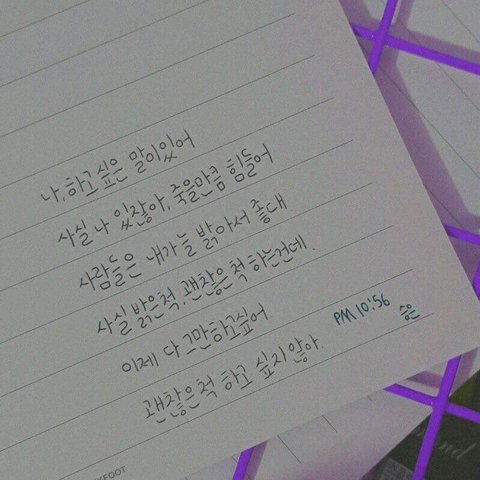 나, 하고 싶은 말이있어
사실 나 있잖아, 죽을만큼 힘들어
사람들은 내가 늘 밝아서 좋대
사실 밝은척, 괜찮은척 하는건데.
이제 다 그만하고싶어
괜찮은척 하고 싶지 않아.
PM 10:56
승은
KFOOT